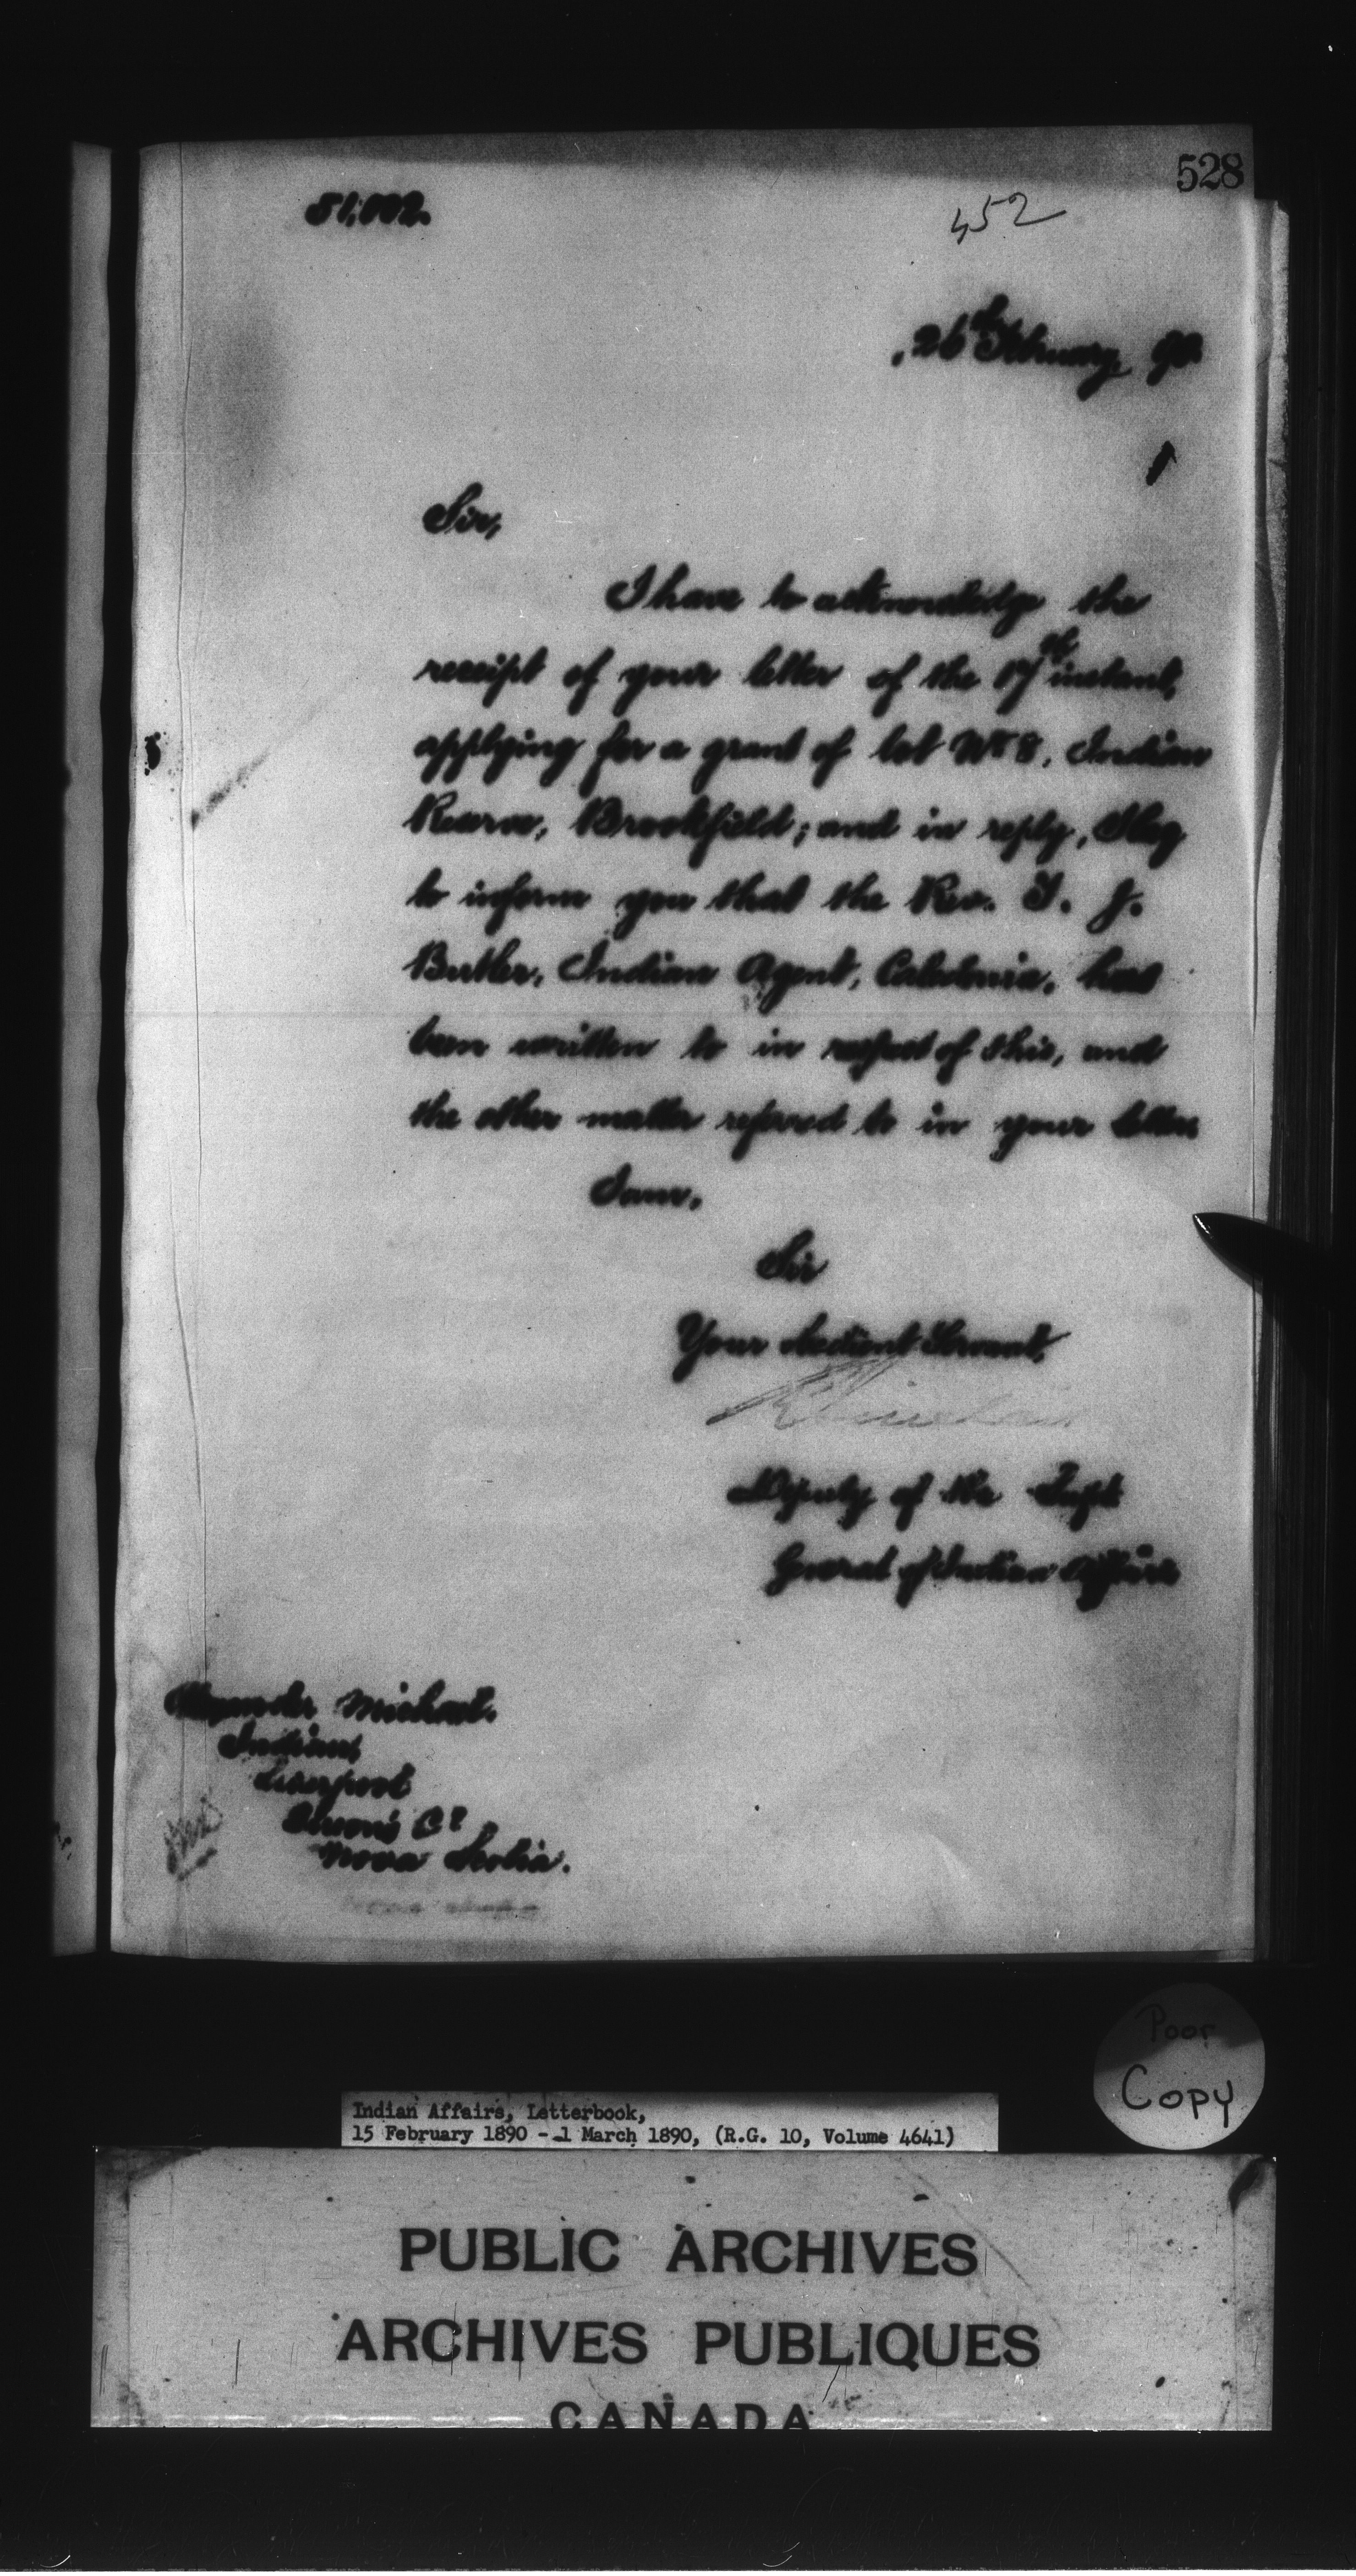 528
452
51,002.
26th February 90
Sir,
I have to acknowledge the
receipt of your letter of the 17th instant,
applying for a grant of lot No 8, Indian
Reserve, Brookfield; and in reply, I beg
to inform you that the Rev. T. J.
Butler, Indian Agent, Caledonia, has
been written to in respect of this, and
the other matter referred to in your letter.
I am,
Sir
Your obedient Servant,
Deputy of the Supt
General of Indian Affairs
Alexander Michael,
Indian,
Liverpool
Queen's Co
Nova Scotia.
Poor
Copy
Indian Affairs, Letterbook,
15 February 1890 - 1 March 1890, (R.G. 10, Volume 4641)
PUBLIC ARCHIVES
ARCHIVES PUBLIQUES
CANADA